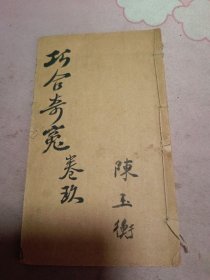 巧合奇冤
卷玖
陳玉衡